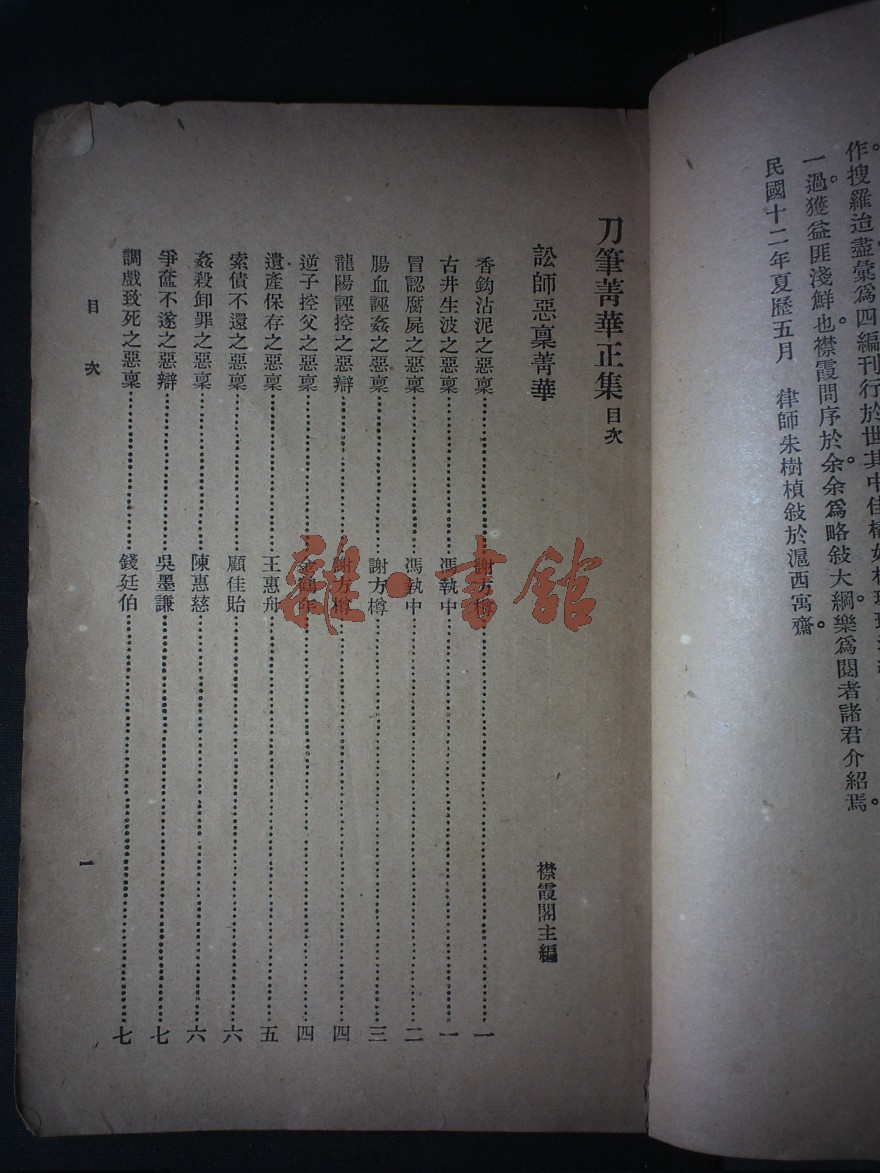 作搜羅迨盡。彙爲四編刊行於世。其中佳構如林
一過。獲益匪淺鮮也。襟霞問序於余。余爲略敍大綱。樂爲閱者諸君介紹焉。
民國十二年夏歷五月 律師朱樹楨敍於滬西寓齋。
刀筆菁華正集目次
訟師惡稟菁華 襟霞閣主編
香鈎沾泥之惡稟…………謝方樽…………一
古井生波之惡稟…………馮執中…………一
冒認腐屍之惡稟…………馮執中…………二
腸血誣姦之惡稟…………謝方樽…………三
龍陽誣控之惡辯…………謝方樽…………四
逆子控父之惡稟…………四
遺產保存之惡稟…………王惠舟…………五
索債不還之惡稟…………顧佳貽…………六
姦殺卸罪之惡稟…………陳惠慈…………六
爭奩不遂之惡辯…………吳墨謙…………七
調戲致死之惡稟…………錢廷伯…………七
目次 一
雜·書館